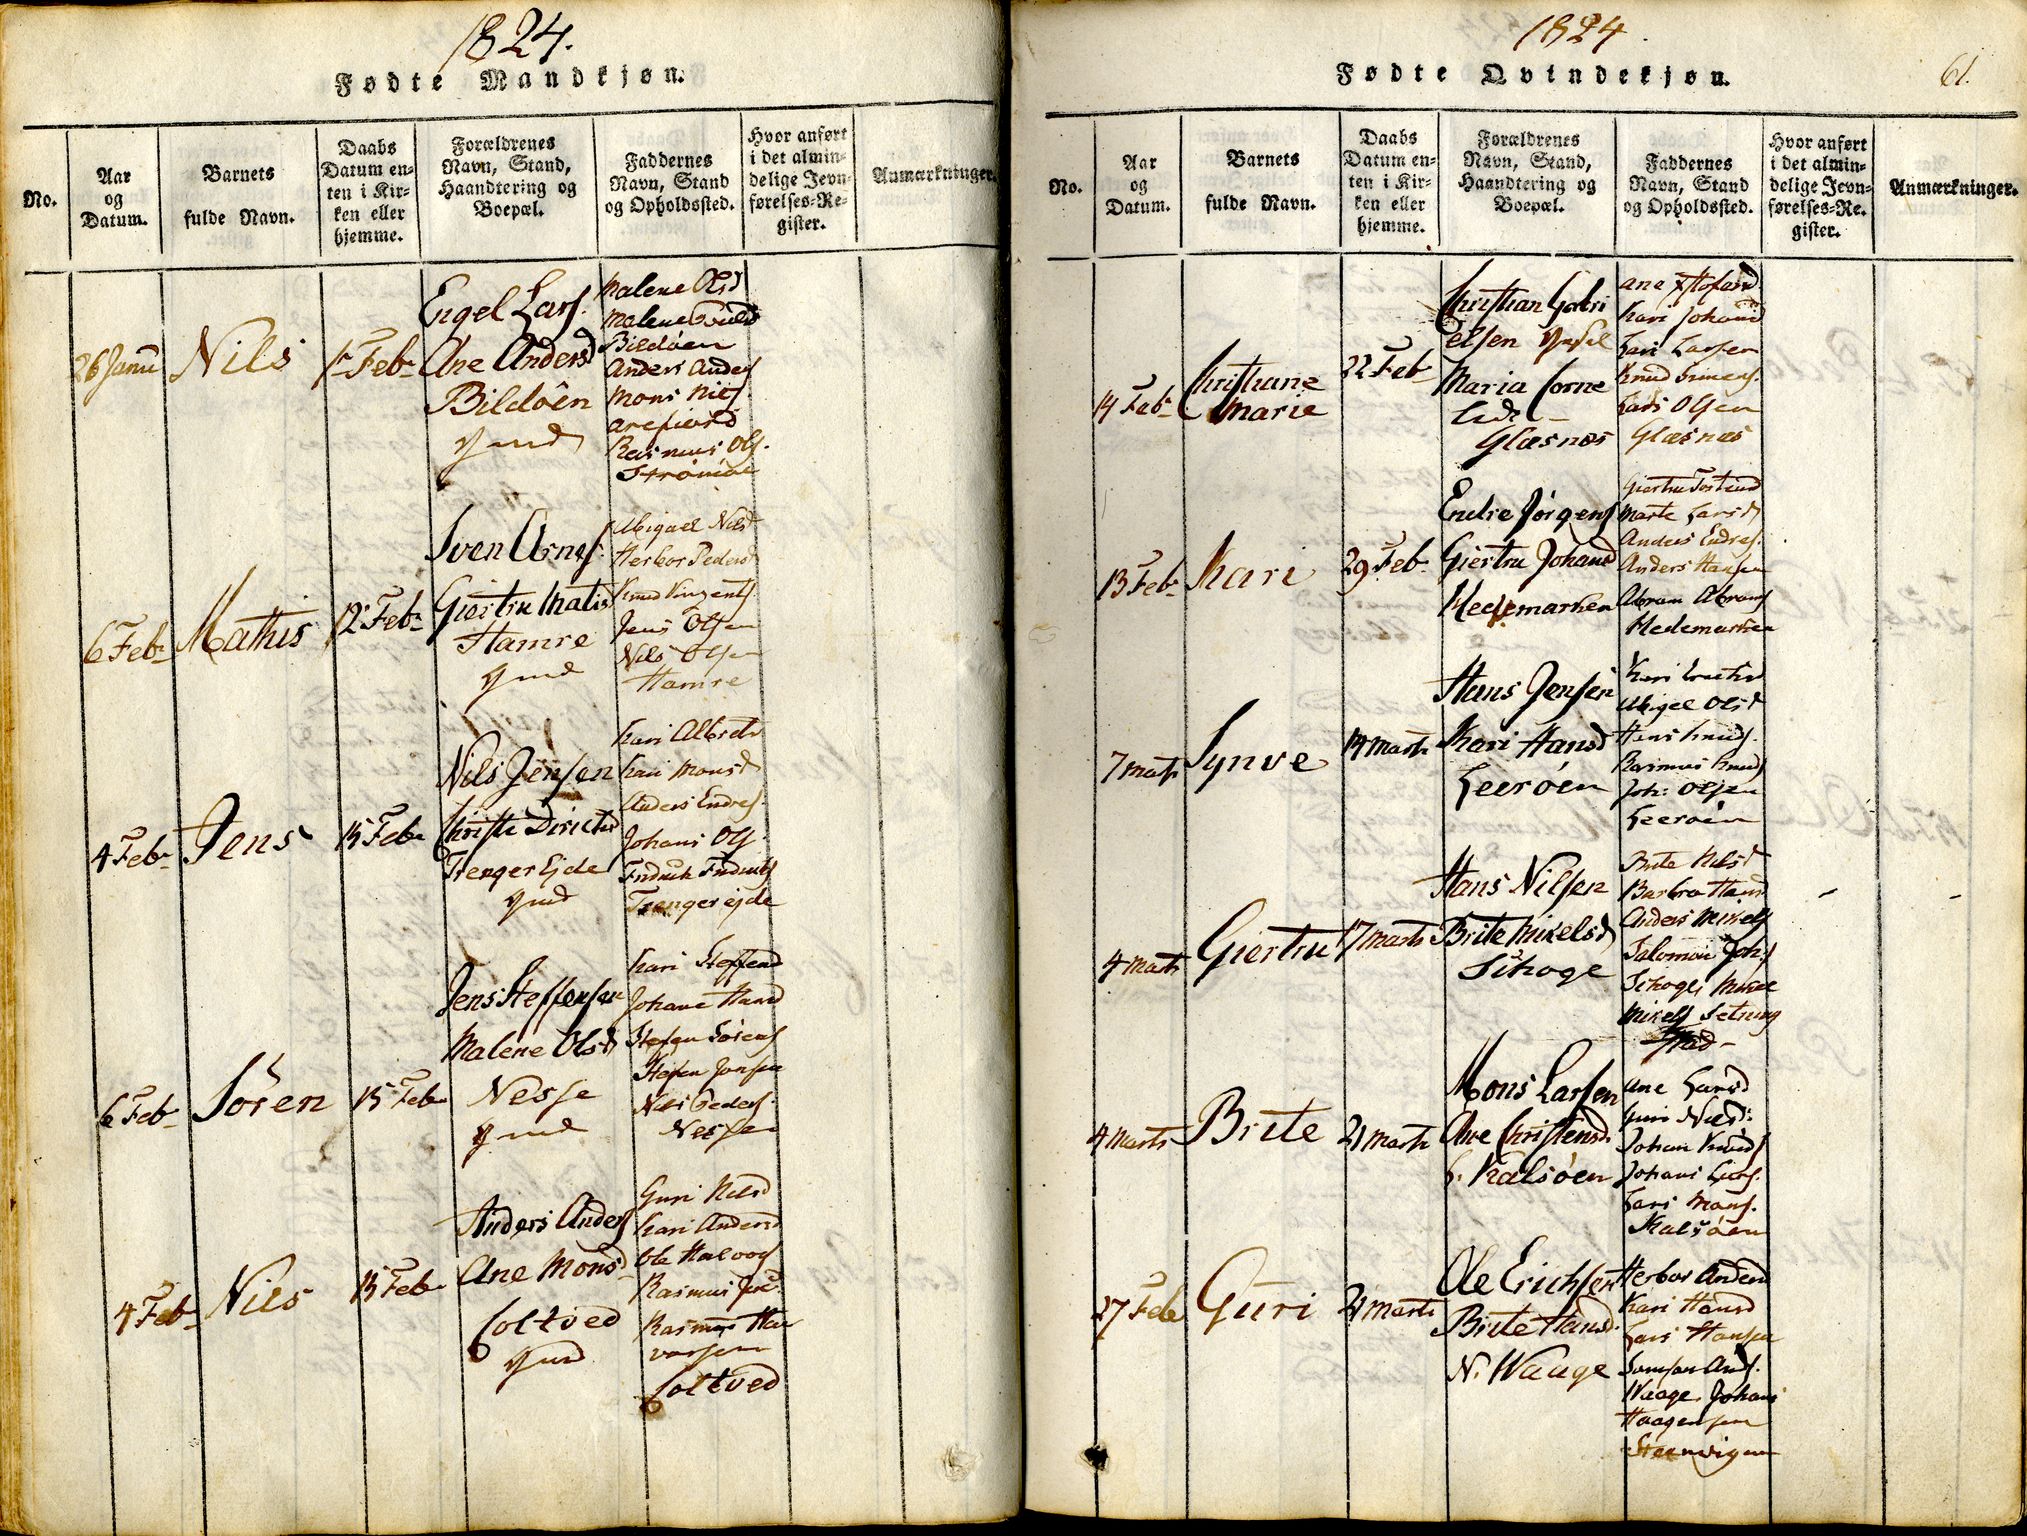 1824.
Fødte Mandkjøn.
No.
Aar
og
Datum.
Barnets
fulde Navn.
Daabs
Datum en-
ten i Kir-
ken eller
hjemme.
Forældrenes
Navn, Stand,
Haandtering og
Boepæl.
Faddernes
Navn, Stand
og Opholdssted.
Hvor anført
i det almin-
delige Jevn-
førelses-Re-
gister.
Anmærkninger.
26 Janu
Nils
1 Feb
Engel Lars.
Ane Anders d
Bildöen
Malene Ols d
Malene
Bildöen
Anders Anders
Mons Nils
Rasmus Ols.
6 Feb
Mathis
12 Feb
Sven Arnes.
Giertru Matis
Hamre
Abigael Nils
Herbor Peders
Knud
Jens Olsen
Nils Olsen
Hamre
4 Feb
Jens
15 Feb
Nils Jensen
Christi
Trenger Ejde
Kari Albretz
Kari Mons d
Anders Endres.
Johans Ols
Fridrich
Trenger ejde
6 Feb
Sören
15 Feb
Jens Steffensen
Malene Ols d
Nesse
Kari Steffens d
Johane Hans d
Stefen Sörens
Stefen Jensen
Nils Peders.
Nesse
4 Feb
Nils
15 Feb
Anders Anders
Ane Mons d
Coltved
Guri Nils d
Kari Anders d
Ole Halvors
Rasmus
Rasmus Hal
vorsen
Coltved
1824.
61.
Fødte Qvindekjøn.
No.
Aar
og
Datum.
Barnets
fulde Navn.
Daabs
Datum en-
ten i Kir-
ken eller
hjemme.
Forældrenes
Navn, Stand,
Haandtering og
Boepæl.
Faddernes
Navn, Stand
og Opholdssted.
Hvor anført
i det almin-
delige Jevn-
førelses-Re-
gister.
Anmærkninger.
14 Feb
Christiane
Marie
22 Feb
Christian Gabri
elsen
Maria Corne
Glæsnæs
Ane
Kari Johans d
Lars Larsen
Knud Simens.
Lars Olsen
Glæsnæs
13 Feb
Kari
29 Feb
Endre Jörgens
Giertru Johans d
Hedemarken
Giertru
Marte Lars d
Anders Endres.
Anders Hansen
Abram Abrams
Hedemarken
7 Marts
Synve
14 Marts
Hans Jensen
Kari Hans d
Leeröen
Kari
Abigel Ols d
Hans Knuds.
Rasmus Knuds
Joh: Olsen
Leeröen
4 Marts
Giertru
17 Marts
Hans Nilsen
Brite Mikels d
Sihoge
Brite Nils d
Barbra Hans d
Anders Mikels
Salomon Joh:
Sihoge, Mikel
Mikels
4 Marts
Brite
21 Marts
Mons Larsen
Ane Christens d.
L. Kalsöen
Ane Lars d
Guri Nils d:
Johan Knuds
Johans Lars.
Lars Mons.
Kalsöen
27 Feb
Guri
21 Marts
Ole Erichsen
Brite Hans d.
N. Waage
Herbor Anders d
Kari Hans d
Lars Hansen
Samson And.
Waage, Johans
Haagensen